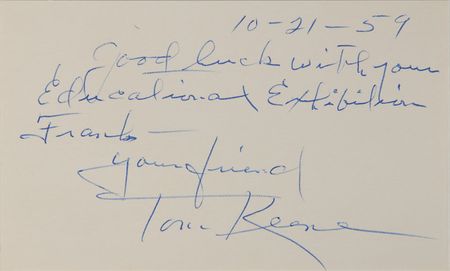 10-21-59
Good luck with your
Educational Exhibition
Frank—
Your friend
Tom Keene